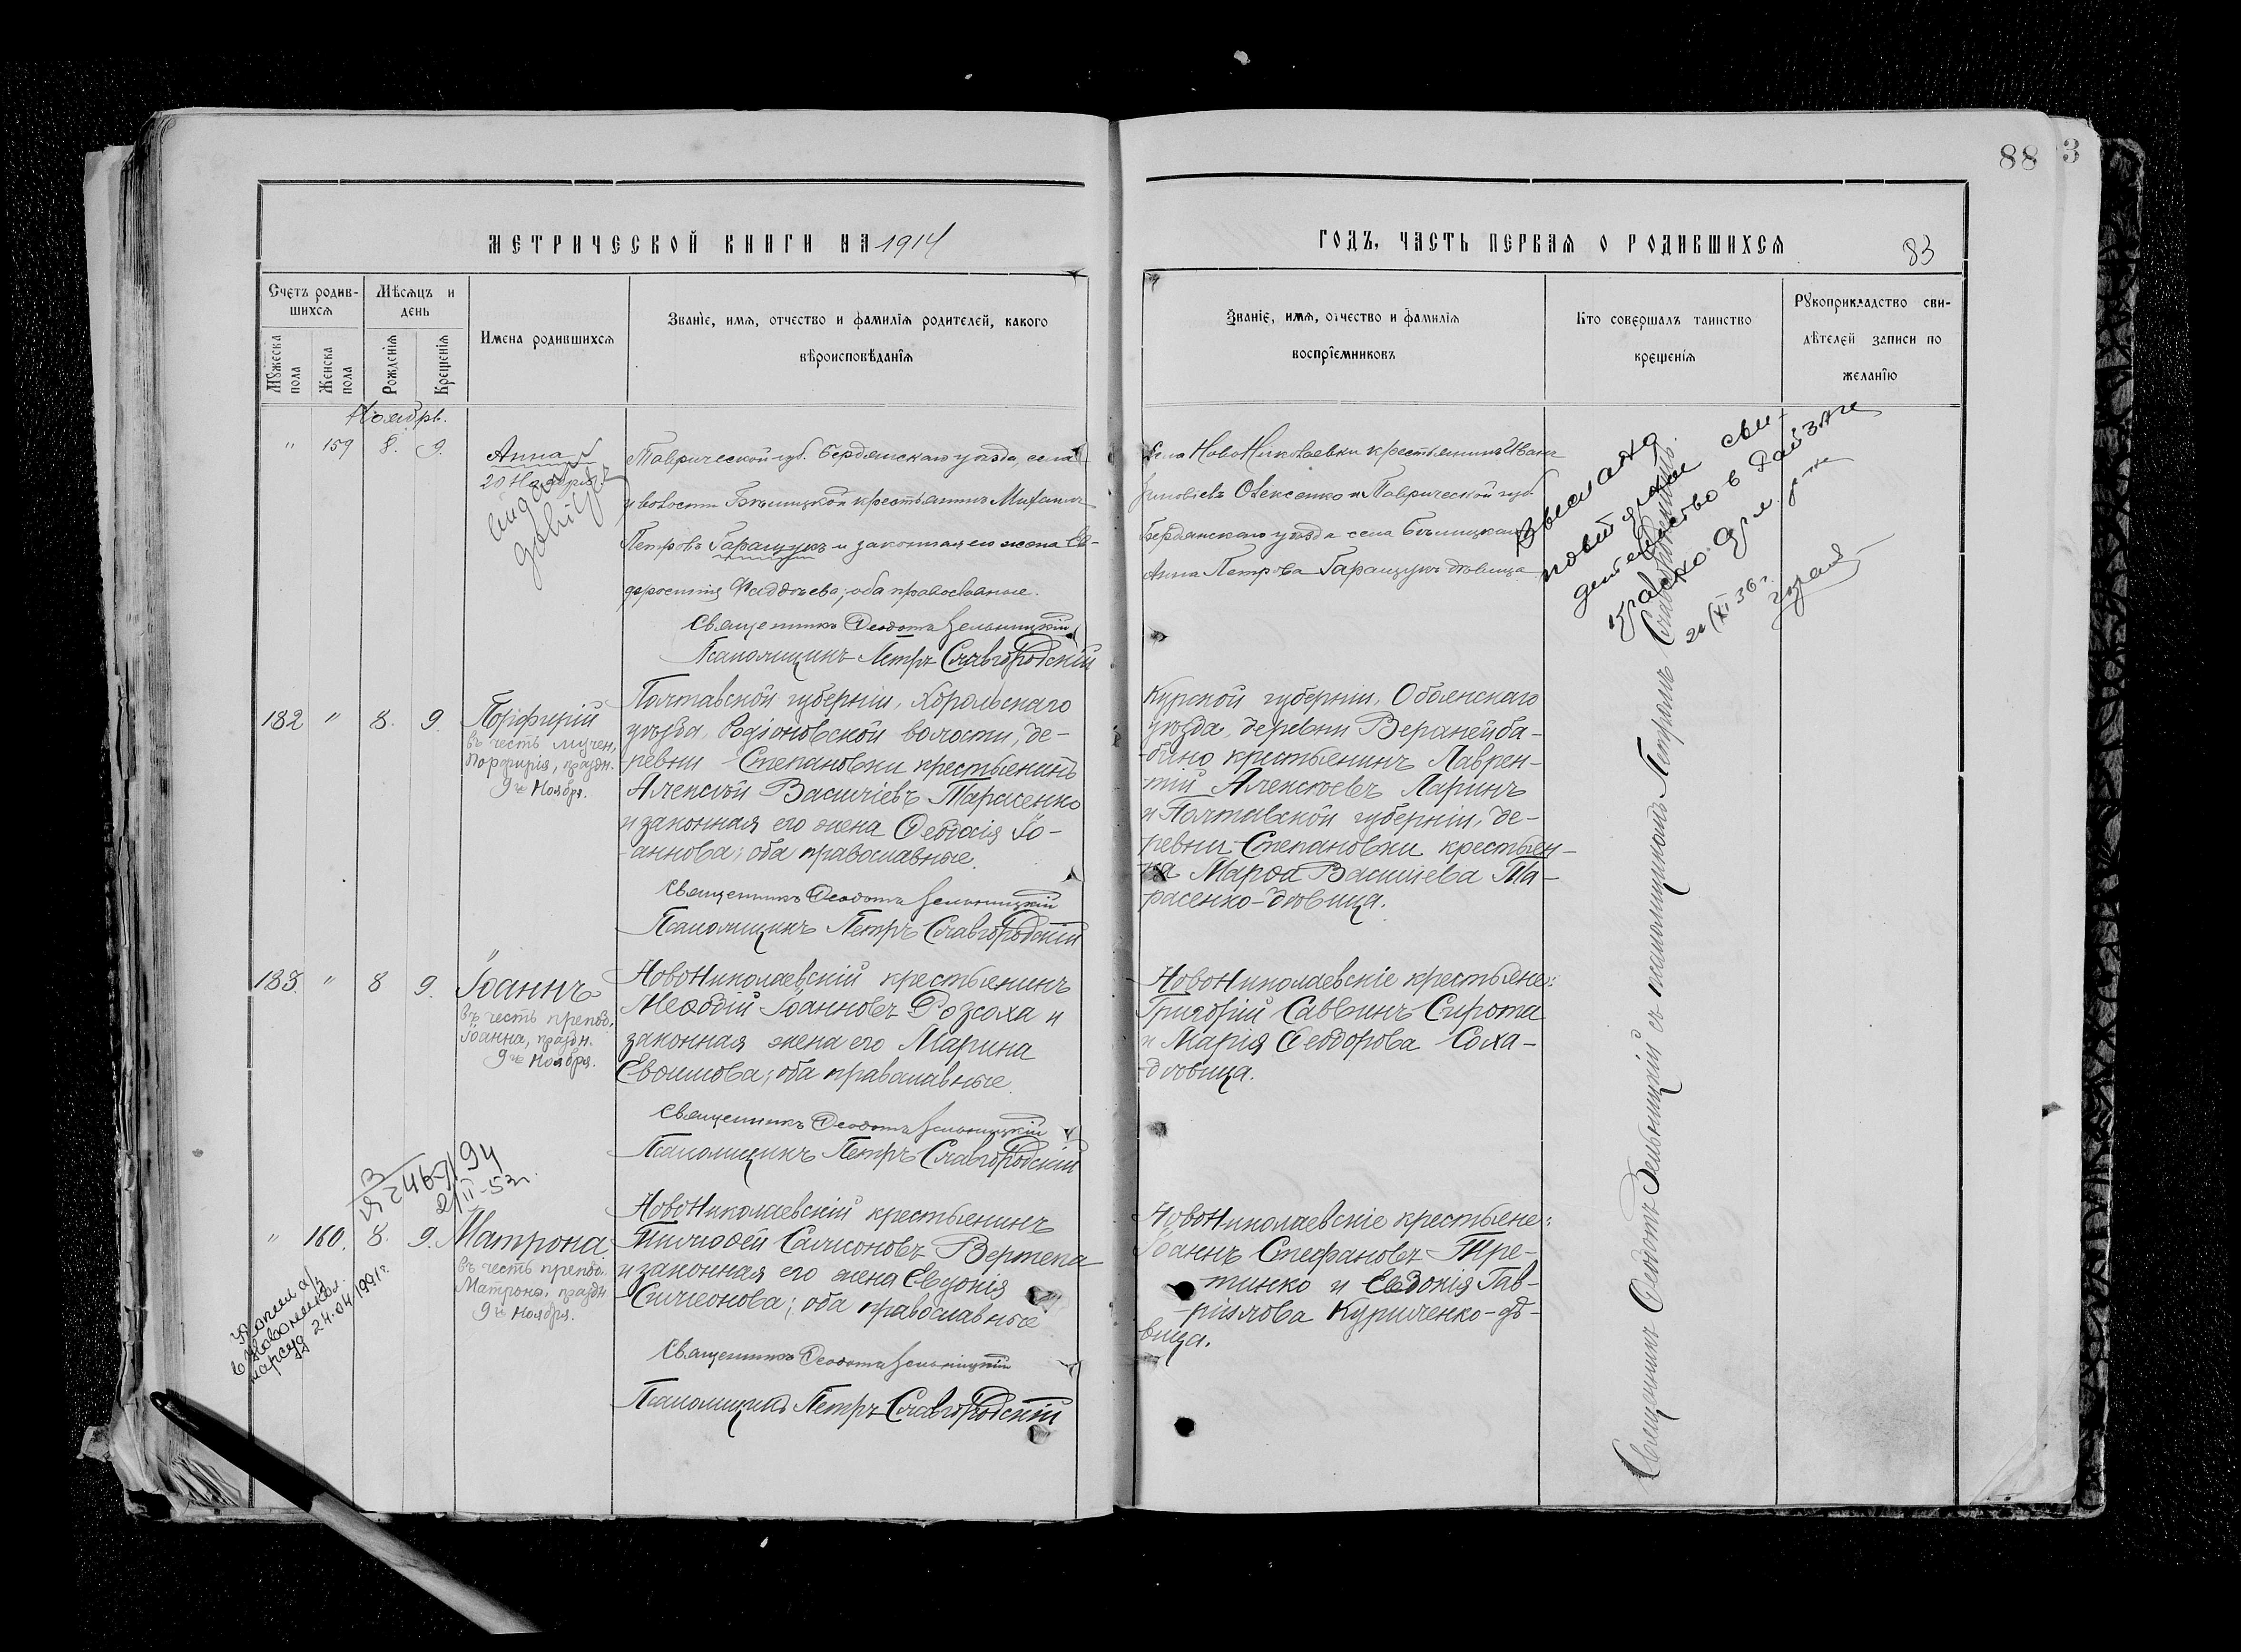 88
МЕТРИЧЕСКОЙ КНИГИ НА 1914
ГОДЪ, ЧАСТЬ ПЕРВАЯ О РОДИВШИХСЯ
83
Счетъ родив-
шихся
Мѣсяцъ и
день
Мужеска
пола
Женска
пола
Рожденія
Крещенія
Имена родившихся
Званіе, имя, отчество и фамилія родителей, какого
вѣроисповѣданія
Званіе, имя, отчество и фамилія
воспріемниковъ
Кто совершалъ таинство
крещенія
Рукоприкладство сви-
дѣтелей записи по
желанію
Ноябрь.
" 159 8. 9.
Анна
Таврической губ. Бердянскаго уѣзда, села
и волости крестьянинъ Михаилъ
Петровъ Гаращукъ и законная его жена Ев-
фросинія Фаддѣева; оба православные.
Священникъ Ѳеодотъ Зельницкій
Псаломщикъ Петръ Славгородскій
Села НовоНиколаевки крестьянинъ Иванъ
Олексенко и Таврической губ.
Бердянскаго уѣзда села
Анна Петрова Гаращукъ дѣвица
182 " 8. 9.
Порфирій
въ честь мучен.
Порфирія, праздн.
9го Ноября.
Полтавской губерніи, Хорольскаго
уѣзда, Родіоновской волости, де-
ревни Степановки крестьянинъ
Алексѣй Василіевъ Тарасенко
и законная его жена Ѳеодосія Іо-
аннова; оба православные.
Священникъ Ѳеодотъ Зельницкій
Псаломщикъ Петръ Славгородскій
Курской губерніи, Обоянскаго
уѣзда, деревни
крестьянинъ Лаврен-
тій Алексѣевъ Ларинъ
и Полтавской губерніи, де-
ревни Степановки крестьян-
ка Марѳа Василіева Та-
расенко-дѣвица.
183 " 8 9.
Іоаннъ
въ честь препод.
Іоанна, праздн.
9го Ноября.
НовоНиколаевскій крестьянинъ
Меѳодій Іоанновъ Розсоха и
законная жена его Марина
Евѳимова; оба православные.
Священникъ Ѳеодотъ Зельницкій
Псаломщикъ Петръ Славгородскій
НовоНиколаевскіе крестьяне:
Григорій Саввинъ Сирота
и Марія Ѳеодорова Соха-
дѣвица.
" 160. 8. 9.
Матрона
въ честь препод.
Матроны, праздн.
9го Ноября.
НовоНиколаевскій крестьянинъ
Тимоѳей Самсоновъ Вертепа
и законная его жена Евдокія
Симеонова; оба православные
Священникъ Ѳеодотъ Зельницкій
Псаломщикъ Петръ Славгородскій
НовоНиколаевскіе крестьяне:
Іоаннъ Стефановъ Тре-
тинко и Евдокія Гав-
ріилова Куриленко-дѣ-
вица.
24.04.1991г.
Выслано
повторное сви-
детельство в райзаге
Священникъ Ѳеодотъ Зельницкій съ псаломщикомъ Петромъ Славгородскимъ.